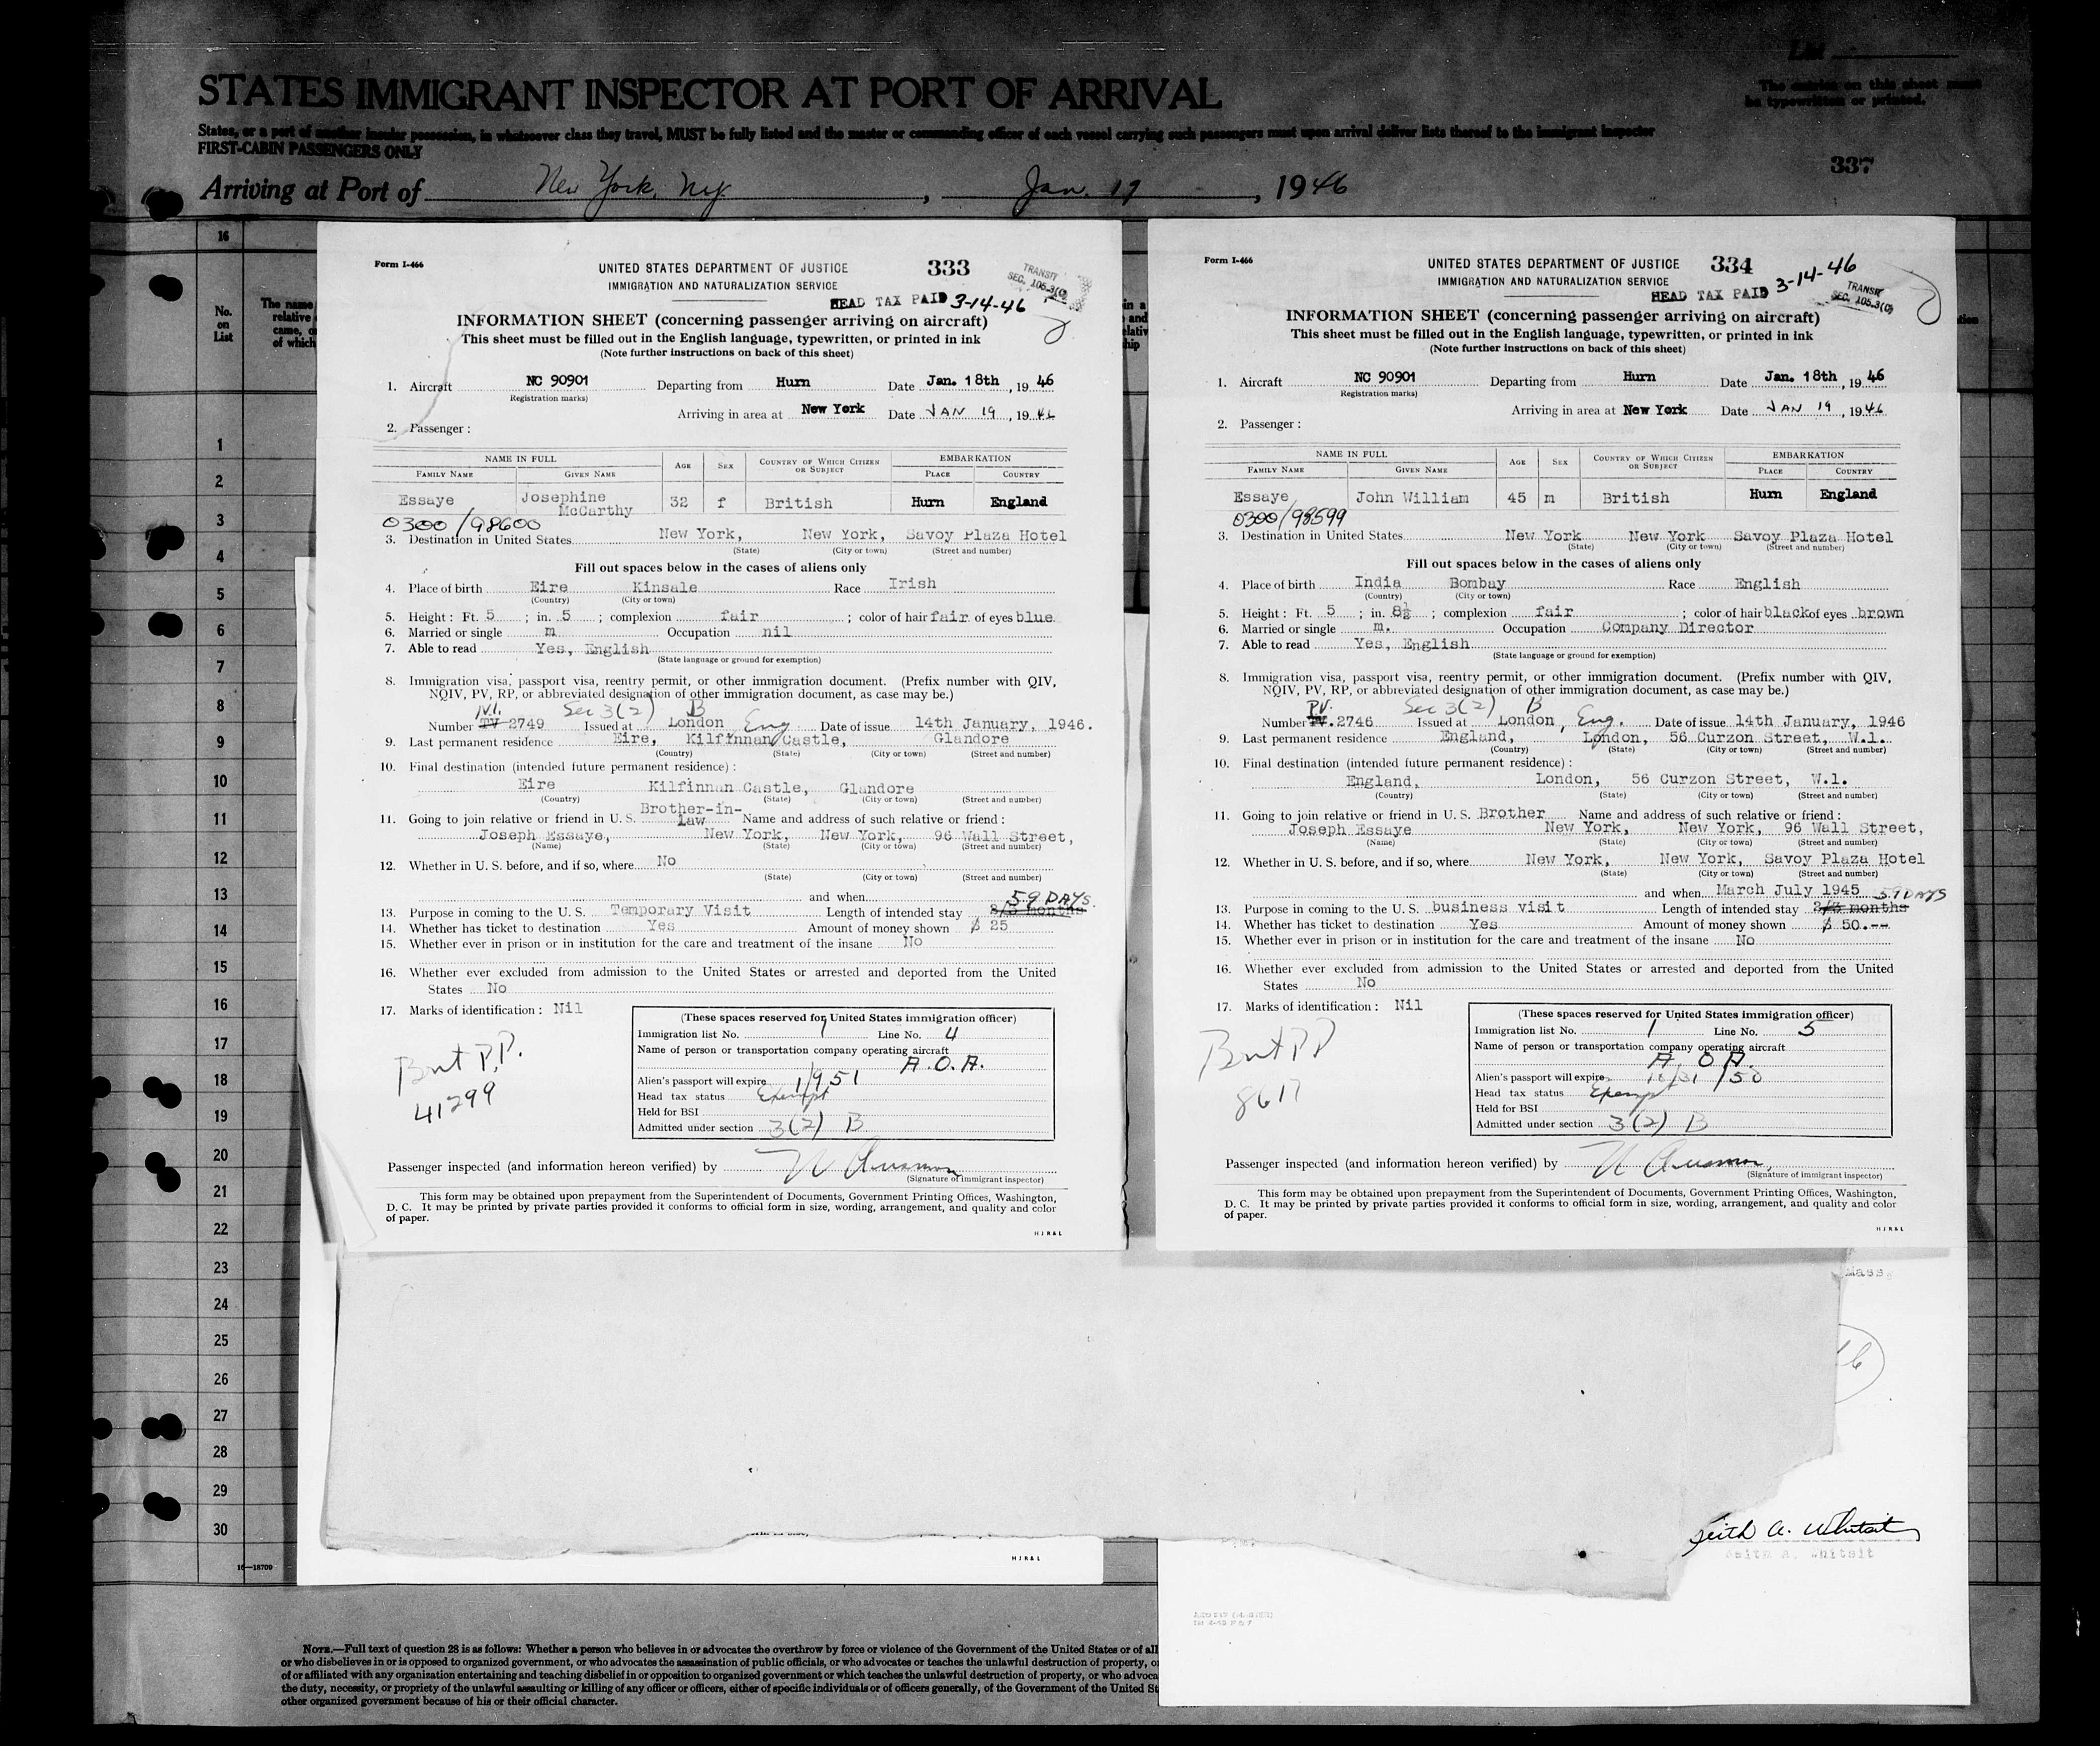 List
The entries on this sheet must
be typewritten or printed.
STATES IMMIGRANT INSPECTOR AT PORT OF ARRIVAL
States, or a part of another insular possession, in whatsoever class they travel, MUST be fully listed and the master or commanding officer of each vessel carrying such passengers must upon arrival deliver lists thereof to the immigrant inspector
FIRST-CABIN PASSENGERS ONLY
337
Arriving at Port of New York, N.Y. , Jan. 19 , 1946
16
No.
on
List
The name
relative
came, o
of which
1
2
3
4
5
6
7
8
9
10
11
12
13
14
15
16
17
18
19
20
21
22
23
24
25
26
27
28
29
30
16—18709
Form I-466
UNITED STATES DEPARTMENT OF JUSTICE
333
TRANSIT
SEC. 105.3(c)
IMMIGRATION AND NATURALIZATION SERVICE
HEAD TAX PAID 3-14-46
INFORMATION SHEET (concerning passenger arriving on aircraft)
This sheet must be filled out in the English language, typewritten, or printed in ink
(Note further instructions on back of this sheet)
1. Aircraft NC 90901 Departing from Hurn Date Jan. 18th , 19 46
(Registration marks)
Arriving in area at New York Date JAN 19 , 19 46
2. Passenger :
NAME IN FULL AGE SEX COUNTRY OF WHICH CITIZEN OR SUBJECT EMBARKATION
FAMILY NAME GIVEN NAME PLACE COUNTRY
Essaye Josephine McCarthy 32 f British Hurn England
0300/98600
3. Destination in United States New York, New York, Savoy Plaza Hotel
(State) (City or town) (Street and number)
Fill out spaces below in the cases of aliens only
4. Place of birth Eire Kinsale Race Irish
(Country) (City or town)
5. Height : Ft. 5 ; in. 5 ; complexion fair ; color of hair fair of eyes blue
6. Married or single m Occupation nil
7. Able to read Yes, English
(State language or ground for exemption)
8. Immigration visa, passport visa, reentry permit, or other immigration document. (Prefix number with QIV,
NQIV, PV, RP, or abbreviated designation of other immigration document, as case may be.)
Sec 3(2) B
Number TV 2749 Issued at London Eng Date of issue 14th January, 1946.
9. Last permanent residence Eire, Kilfinnan Castle, Glandore
(Country) (State) (City or town) (Street and number)
10. Final destination (intended future permanent residence) :
Eire Kilfinnan Castle, Glandore
(Country) (State) (City or town) (Street and number)
Brother-in-
11. Going to join relative or friend in U. S. law Name and address of such relative or friend :
Joseph Essaye, New York, New York, 96 Wall Street,
(Name) (State) (City or town) (Street and number)
12. Whether in U. S. before, and if so, where No
(State) (City or town) (Street and number)
and when
59 DAYS.
13. Purpose in coming to the U. S. Temporary Visit Length of intended stay 2/3 months
14. Whether has ticket to destination Yes Amount of money shown $ 25
15. Whether ever in prison or in institution for the care and treatment of the insane No
16. Whether ever excluded from admission to the United States or arrested and deported from the United
States No
17. Marks of identification : Nil
Brit P.P.
41299
(These spaces reserved for United States immigration officer)
Immigration list No. 1 Line No. 4
Name of person or transportation company operating aircraft
A.O.A.
Alien's passport will expire 1/9/51
Head tax status Exempt
Held for BSI
Admitted under section 3(2) B
Passenger inspected (and information hereon verified) by
(Signature of immigrant inspector)
This form may be obtained upon prepayment from the Superintendent of Documents, Government Printing Offices, Washington,
D. C. It may be printed by private parties provided it conforms to official form in size, wording, arrangement, and quality and color
of paper.
HJR&L
Form I-466
UNITED STATES DEPARTMENT OF JUSTICE
334
3-14-46
TRANSIT
SEC. 105.3(c)
IMMIGRATION AND NATURALIZATION SERVICE
HEAD TAX PAID
INFORMATION SHEET (concerning passenger arriving on aircraft)
This sheet must be filled out in the English language, typewritten, or printed in ink
(Note further instructions on back of this sheet)
1. Aircraft NC 90901 Departing from Hurn Date Jan. 18th , 19 46
(Registration marks)
Arriving in area at New York Date JAN 19 , 19 46
2. Passenger :
NAME IN FULL AGE SEX COUNTRY OF WHICH CITIZEN OR SUBJECT EMBARKATION
FAMILY NAME GIVEN NAME PLACE COUNTRY
Essaye John William 45 m British Hurn England
0300/98599
3. Destination in United States New York New York Savoy Plaza Hotel
(State) (City or town) (Street and number)
Fill out spaces below in the cases of aliens only
4. Place of birth India Bombay Race English
(Country) (City or town)
5. Height : Ft. 5 ; in. 8½ ; complexion fair ; color of hair black of eyes brown
6. Married or single m. Occupation Company Director
7. Able to read Yes, English
(State language or ground for exemption)
8. Immigration visa, passport visa, reentry permit, or other immigration document. (Prefix number with QIV,
NQIV, PV, RP, or abbreviated designation of other immigration document, as case may be.)
P.V. Sec 3(2) B
Number TV. 2746 Issued at London, Eng. Date of issue 14th January, 1946
9. Last permanent residence England, London, 56 Curzon Street, W.1.
(Country) (State) (City or town) (Street and number)
10. Final destination (intended future permanent residence) :
England, London, 56 Curzon Street, W.1.
(Country) (State) (City or town) (Street and number)
11. Going to join relative or friend in U. S. Brother Name and address of such relative or friend :
Joseph Essaye New York, New York, 96 Wall Street,
(Name) (State) (City or town) (Street and number)
12. Whether in U. S. before, and if so, where New York, New York, Savoy Plaza Hotel
(State) (City or town) (Street and number)
and when March July 1945 59 DAYS
13. Purpose in coming to the U. S. business visit Length of intended stay 2/3 months
14. Whether has ticket to destination Yes Amount of money shown $ 50.--
15. Whether ever in prison or in institution for the care and treatment of the insane No
16. Whether ever excluded from admission to the United States or arrested and deported from the United
States No
17. Marks of identification : Nil
Brit PP
8617
(These spaces reserved for United States immigration officer)
Immigration list No. 1 Line No. 5
Name of person or transportation company operating aircraft
A. O A.
Alien's passport will expire /31/50
Head tax status Exempt
Held for BSI
Admitted under section 3(2) B
Passenger inspected (and information hereon verified) by
(Signature of immigrant inspector)
This form may be obtained upon prepayment from the Superintendent of Documents, Government Printing Offices, Washington,
D. C. It may be printed by private parties provided it conforms to official form in size, wording, arrangement, and quality and color
of paper.
HJR&L
Mass
Keith A. Whitsit
Keith A. Whitsit
HJR&L
NOTE.—Full text of question 28 is as follows: Whether a person who believes in or advocates the overthrow by force or violence of the Government of the United States or of all
or who disbelieves in or is opposed to organized government, or who advocates the assassination of public officials, or who advocates or teaches the unlawful destruction of property, o
of or affiliated with any organization entertaining and teaching disbelief in or opposition to organized government or which teaches the unlawful destruction of property, or who advoca
the duty, necessity, or propriety of the unlawful assaulting or killing of any officer or officers, either of specific individuals or of officers generally, of the Government of the United St
other organized government because of his or their official character.